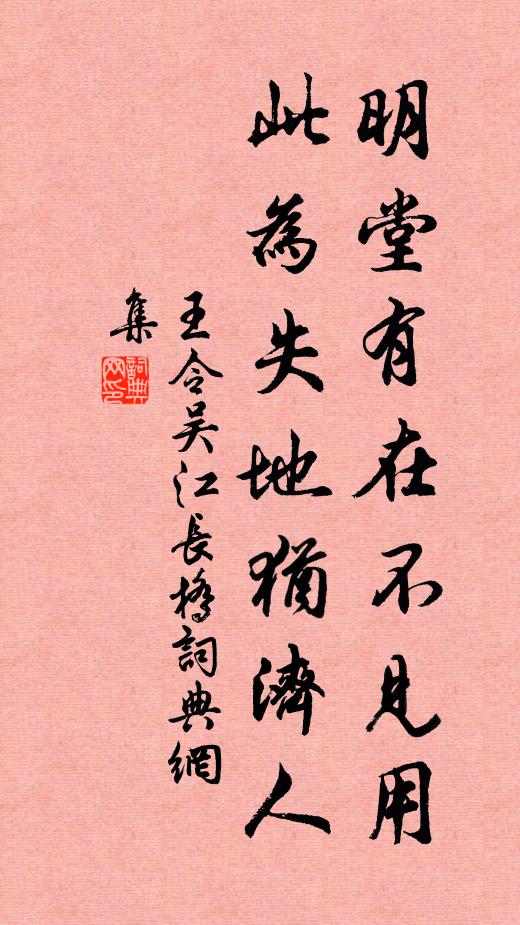 明堂有在不見用
此為失地猶濟人
王令吳江長橋詞典網
集
詞典
网印